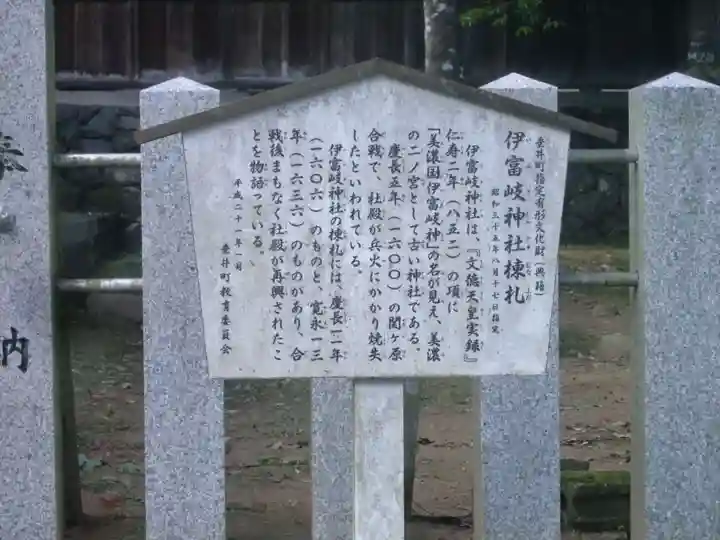 垂井町指定有形文化財(典籍)
昭和三十五年八月十七日指定
伊富岐神社棟札
伊富岐神社は、『文徳天皇実録』
仁寿二年(八五二)の項に
「美濃国伊富岐神」の名が見え、美濃
の二ノ宮として古い神社である。
慶長五年(一六〇〇)の関ヶ原
合戦で、社殿が兵火にかかり焼失
したといわれている。
伊富岐神社の棟札には、慶長一一年
(一六〇六)のものと、寛永一三
年(一六三六)のものがあり、合
戦後まもなく社殿が再興されたこ
とを物語っている。
平成二十一年一月
垂井町教育委員会
奉
納